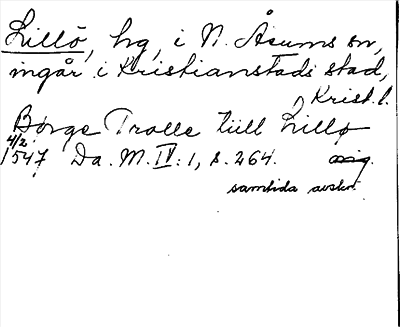 Lillö, hg, i N. Åsums sn,
ingår i Kristianstads stad,
Krist. l.
Børge Trolle till Lillø
4/2
1547 Da. M. IV: 1, s. 264. orig.
samtida avskr.